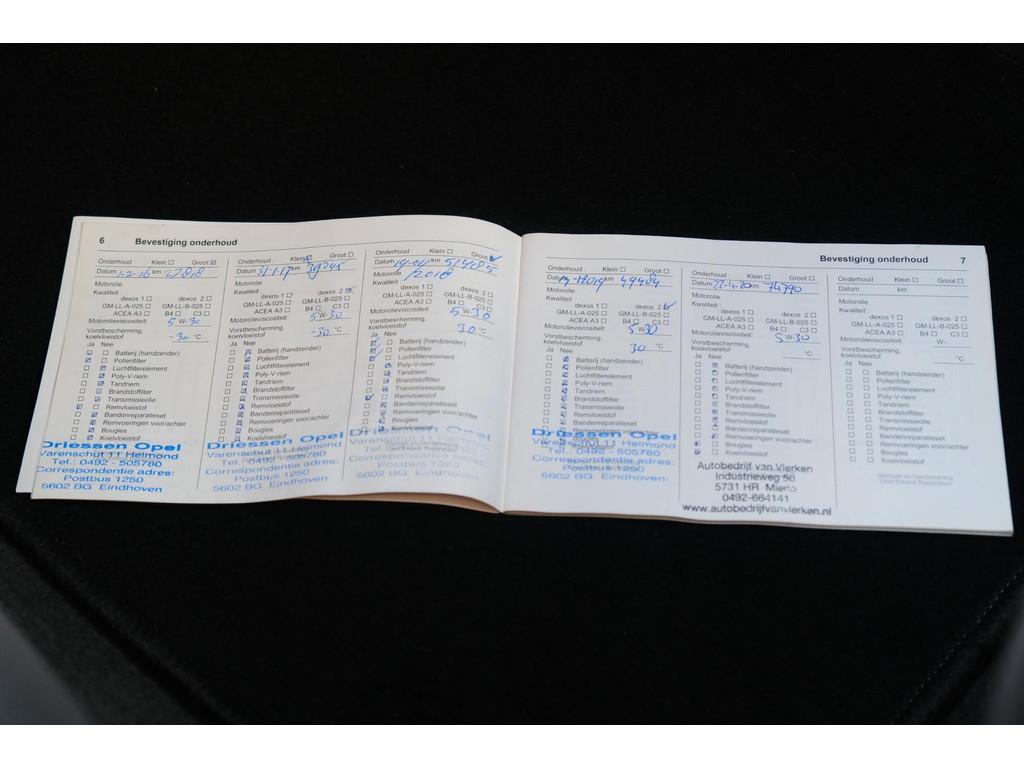 6 Bevestiging onderhoud
Onderhoud : Klein ☐ Groot ☒
Datum 1-2-16 km 27818
Motorolie
Kwaliteit :
dexos 1 ☐ dexos 2 ☐
GM-LL-A-025 ☐ GM-LL-B-025 ☐
ACEA A3 ☐ B4 ☐ C3 ☐
Motorolieviscositeit: 5 W-30
Vorstbescherming,
koelvloeistof -30 °C
Ja Nee
Batterij (handzender)
Pollenfilter
Luchtfilterelement
Poly-V-riem
Tandriem
Brandstoffilter
Transmissieolie
Remvloeistof
Bandenreparatieset
Remvoeringen voor/achter
Bougies
Koelvloeistof
Driessen Opel
Varenschut 11 Helmond
Tel.: 0492 - 505780
Correspondentie adres:
Postbus 1250
5602 BG Eindhoven
Onderhoud : Klein Groot ☐
Datum 31-1-17 km
Motorolie
Kwaliteit :
dexos 1 ☐ dexos 2
GM-LL-A-025 ☐ GM-LL-B-025 ☐
ACEA A3 ☐ B4 ☐ C3 ☐
Motorolieviscositeit: 5 W-30
Vorstbescherming,
koelvloeistof -30 °C
Ja Nee
Batterij (handzender)
Pollenfilter
Luchtfilterelement
Poly-V-riem
Tandriem
Brandstoffilter
Transmissieolie
Remvloeistof
Bandenreparatieset
Remvoeringen voor/achter
Bougies
Koelvloeistof
Driessen Opel
Varenschut 11 Helmond
Tel.: 0492 - 505780
Correspondentie adres:
Postbus 1250
5602 BG Eindhoven
Onderhoud : Klein ☐ Groot
Datum km 51485
Motorolie 2018
Kwaliteit :
dexos 1 ☐ dexos 2 ☐
GM-LL-A-025 ☐ GM-LL-B-025 ☐
ACEA A3 ☐ B4 ☐ C3 ☐
Motorolieviscositeit: 5 W-30
Vorstbescherming,
koelvloeistof 30 °C
Ja Nee
Batterij (handzender)
Pollenfilter
Luchtfilterelement
Poly-V-riem
Tandriem
Brandstoffilter
Transmissieolie
Remvloeistof
Bandenreparatieset
Remvoeringen voor/achter
Bougies
Koelvloeistof
Opel
Varenschut 11 Helmond
Tel.: 0492 - 505780
Correspondentie adres:
Postbus 1250
5602 BG Eindhoven
Bevestiging onderhoud 7
Onderhoud : Klein ☐ Groot
Datum km
Motorolie
Kwaliteit :
dexos 1 ☐ dexos 2
GM-LL-A-025 ☐ GM-LL-B-025 ☐
ACEA A3 ☐ B4 ☐ C3 ☐
Motorolieviscositeit: 5 W-30
Vorstbescherming,
koelvloeistof 30 °C
Ja Nee
Batterij (handzender)
Pollenfilter
Luchtfilterelement
Poly-V-riem
Tandriem
Brandstoffilter
Transmissieolie
Remvloeistof
Bandenreparatieset
Remvoeringen voor/achter
Driessen Opel
Tel.: 0492 - 505780
Correspondentie adres:
Postbus 1250
5602 BG Eindhoven
Onderhoud : Klein ☐ Groot ☐
Datum 22-4-20 km 74790
Motorolie
Kwaliteit :
dexos 1 ☐ dexos 2 ☐
GM-LL-A-025 ☐ GM-LL-B-025 ☐
ACEA A3 ☐ B4 ☐ C3 ☐
Motorolieviscositeit: 5 W-30
Vorstbescherming,
koelvloeistof °C
Ja Nee
Batterij (handzender)
Pollenfilter
Luchtfilterelement
Poly-V-riem
Tandriem
Brandstoffilter
Transmissieolie
Remvloeistof
Bandenreparatieset
Remvoeringen voor/achter
Bougies
Koelvloeistof
Autobedrijf van Vlerken
Industrieweg 50
5731 HR Mierlo
0492-664141
www.autobedrijfvanvlerken.nl
Onderhoud : Klein ☐ Groot ☐
Datum km
Motorolie
Kwaliteit :
dexos 1 ☐ dexos 2 ☐
GM-LL-A-025 ☐ GM-LL-B-025 ☐
ACEA A3 ☐ B4 ☐ C3 ☐
Motorolieviscositeit: W-
Vorstbescherming,
koelvloeistof °C
Ja Nee
☐ ☐ Batterij (handzender)
☐ ☐ Pollenfilter
☐ ☐ Luchtfilterelement
☐ ☐ Poly-V-riem
☐ ☐ Tandriem
☐ ☐ Brandstoffilter
☐ ☐ Transmissieolie
☐ ☐ Remvloeistof
☐ ☐ Bandenreparatieset
☐ ☐ Remvoeringen voor/achter
☐ ☐ Bougies
☐ ☐ Koelvloeistof